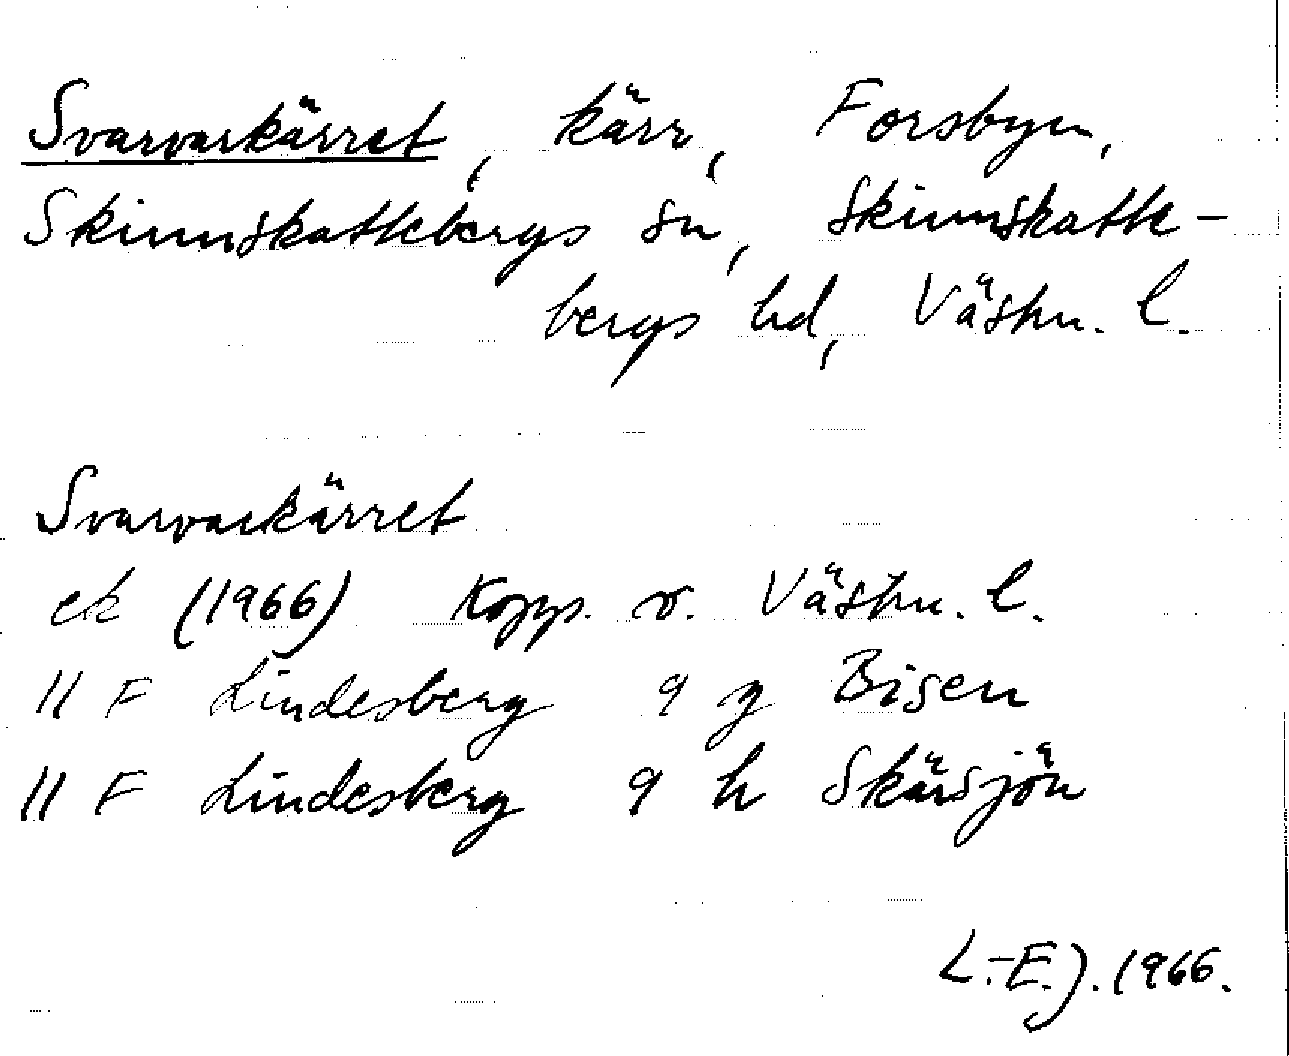 Svarvarkärret, kärr, Forsbyn,
Skinnskattebergs sn, Skinnskatte-
bergs hd, Västm. l.
Svarvarkärret
ek (1966) Kopp. o. Västm. l.
11 F Lindesberg 9 g Bisen
11 F Lindesberg 9 h Skärsjön
L.-E.J. 1966.